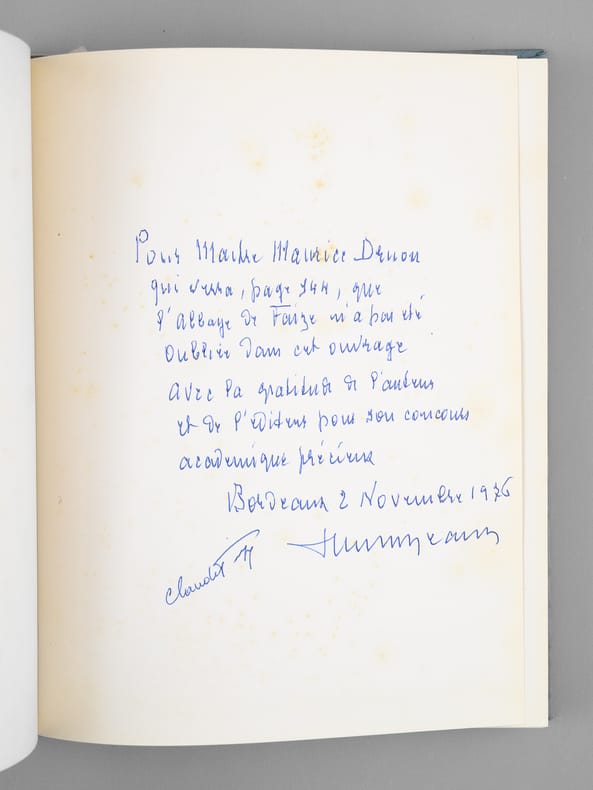 Pour Maitre Maurice Druon
qui verra, page 144, que
l'Abbaye de Faize n'a pas été
oubliée dans cet ouvrage
avec la gratitude de l'auteur
et de l'éditeur pour son concours
académique précieux
Bordeaux 2 Novembre 1976